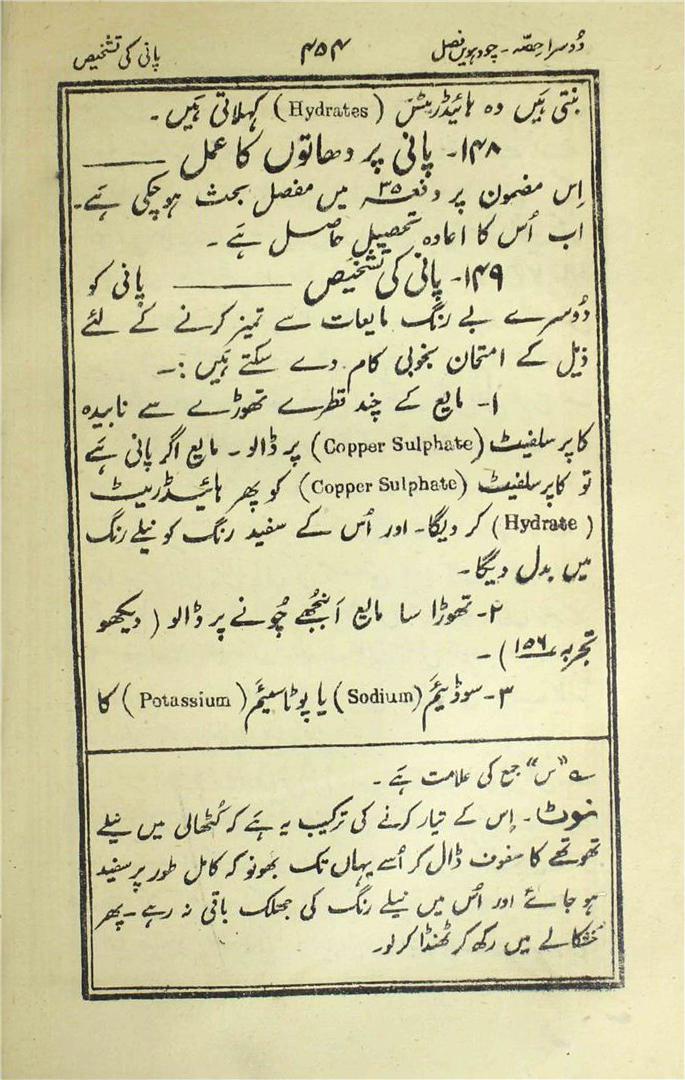 دُوسرا حِصّہ ۔ چودہویں فصل ۴۵۴ پانی کی تشخیص
بنتی ہَیں وہ ہائیڈریٹس (Hydrates) کہلاتی ہَیں ۔
۱۴۸۔ پانی پر دھاتوں کا عمل
اِس مضمون پر دفعہ ۳۵ میں مفصل بحث ہوچکی ہَے۔
اب اُس کا اعادہ تحصیلِ حاصل ہَے ۔
۱۴۹۔ پانی کی تشخیص پانی کو
دُوسرے بے رنگ مایعات سے تمیز کرنے کے لئے
ذیل کے امتحان بخوبی کام دے سکتے ہَیں :۔
۱۔ مایع کے چند قطرے تھوڑے سے نابیدہ
کاپر سلفیٹ (Copper Sulphate) پر ڈالو ۔ مایع اگر پانی ہَے
تو کاپر سلفیٹ (Copper Sulphate) کو پھر ہائیڈریٹ
(Hydrate) کر دیگا۔ اور اُس کے سفید رنگ کو نیلے رنگ
میں بدل دیگا۔
۲۔ تھوڑا سا مایع اَنبُجھے چُونے پر ڈالو ( دیکھو
تجربہ ۱۵۶ ) ۔
۳۔ سوڈیئم (Sodium) یا پوٹاسیئم (Potassium) کا
؎ “س” جمع کی علامت ہَے ۔
نوٹ۔ اِس کے تیار کرنے کی ترکیب یہ ہَے کہ کُٹھالی میں نیلے
تھوتھے کا سفوف ڈال کر اُسے یہاں تک بھونو کہ کامل طور پر سفید
ہو جائے اور اُس میں نیلے رنگ کی جھلک باقی نہ رہے ۔ پھر
خشکالے میں رکھ کر ٹھنڈا کر لو۔